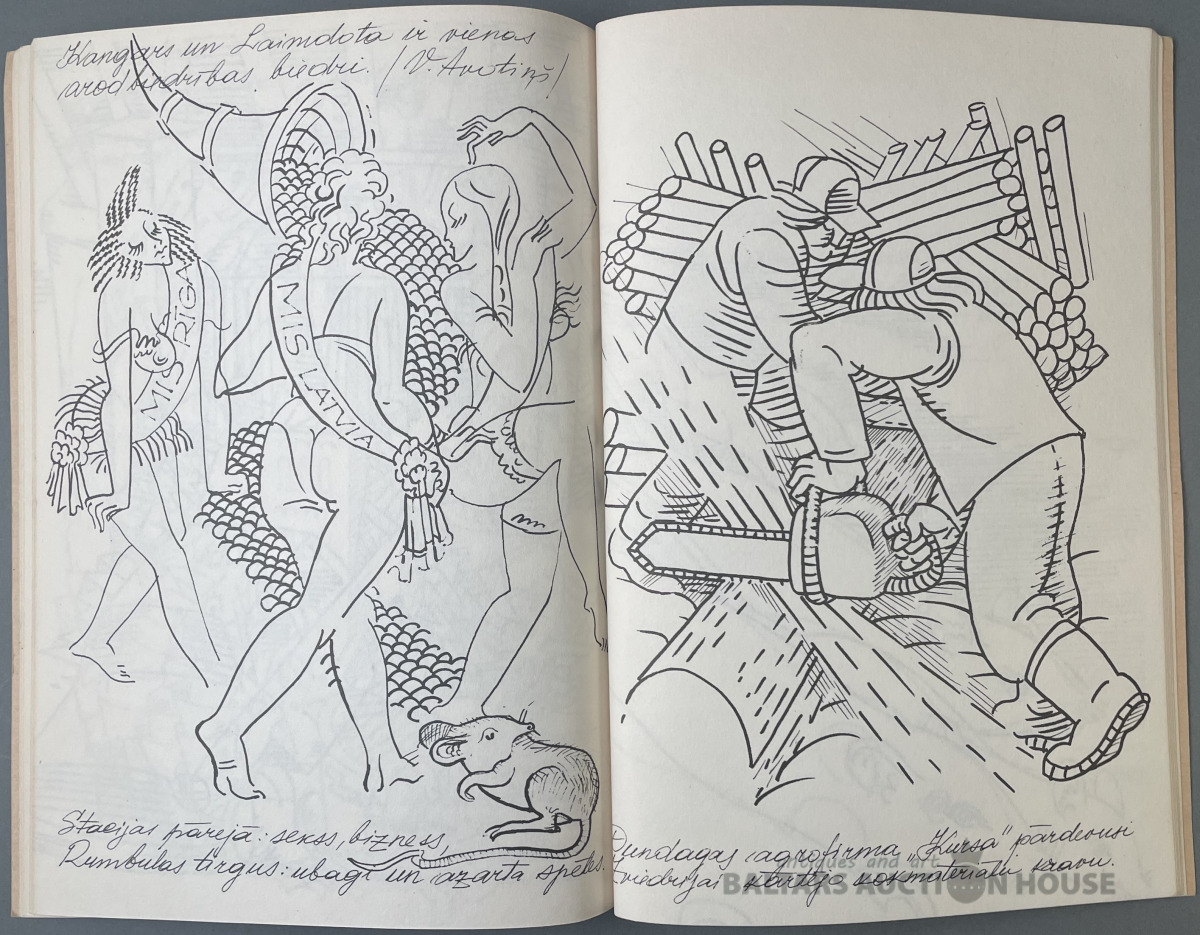 Kangars un Laimdota ir vienas
arodbiedrības biedri. (V. Avotiņš)
MIS RIGA
MIS LATVIA
Stacijas pārejā: sekss, bizness,
Rumbulas tirgus: ubagi un azarta spēles.
Dundagas agrofirma "Kursa" pārdevusi
Zviedrijai kārtējo kokmateriālu kravu.
antiques and art
BALTARS AUCTION HOUSE